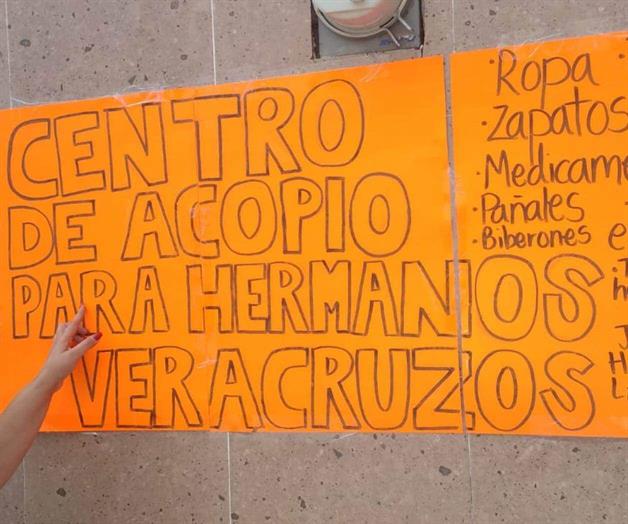 CENTRO
DE ACOPIO
PARA HERMANOS
VERACRUZOS
· Ropa
· Zapatos
· Medicame
· Pañales
· Biberones e